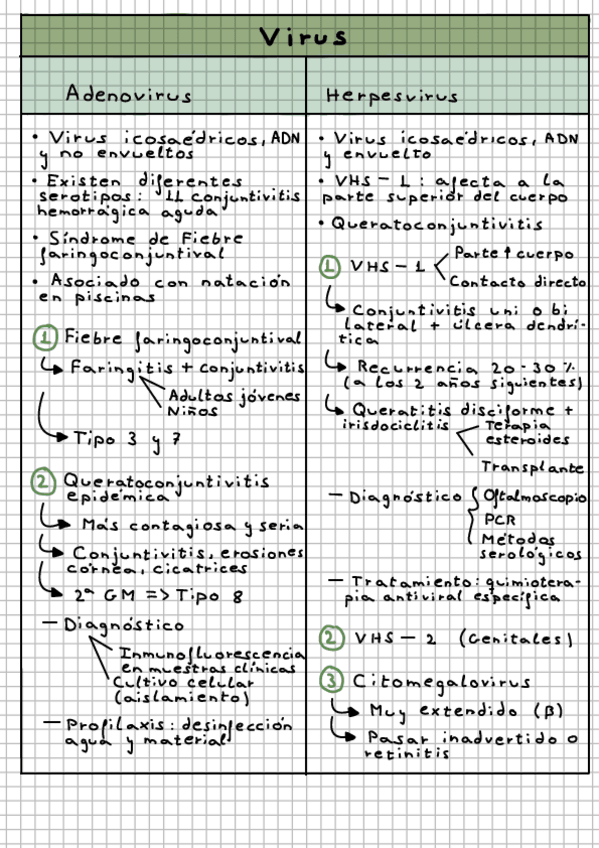 Virus
Adenovirus
• Virus icosaédricos, ADN
y no envueltos
• Existen diferentes
serotipos: 11 conjuntivitis
hemorrágica aguda
• Síndrome de Fiebre
faringoconjuntival
• Asociado con natación
en piscinas
1 Fiebre faringoconjuntival
Faringitis + conjuntivitis
Adultos jóvenes
Niños
Tipo 3 y 7
2 Queratoconjuntivitis
epidémica
Más contagiosa y seria
Conjuntivitis, erosiones
córnea, cicatrices
2ª GM => Tipo 8
— Diagnóstico
Inmunofluorescencia
en muestras clínicas
Cultivo celular
(aislamiento)
— Profilaxis: desinfección
agua y material
Herpesvirus
• Virus icosaédricos, ADN
y envuelto
• VHS - 1: afecta a la
parte superior del cuerpo
• Queratoconjuntivitis
1 VHS - 1
Parte ↑ cuerpo
Contacto directo
Conjuntivitis uni o bi
lateral + úlcera dendrí-
tica
Recurrencia 20-30 %
(a los 2 años siguientes)
Queratitis disciforme +
irisdociclitis
Terapia
esteroides
Transplante
— Diagnóstico
Oftalmoscopio
PCR
Métodos
serológicos
— Tratamiento: quimiotera-
pia antiviral específica
2 VHS - 2 (Genitales)
3 Citomegalovirus
Muy extendido (β)
Pasar inadvertido o
retinitis